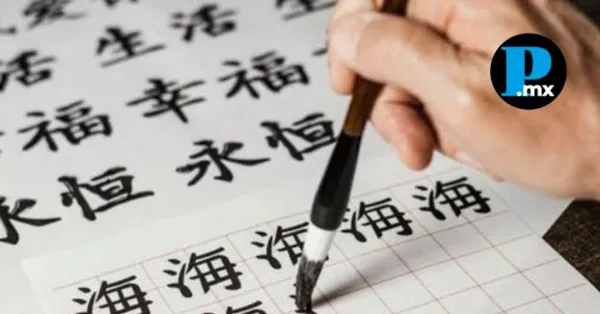 爱
活 生活
福 幸福
永恒 永恒
海 海 海 海 海
P.mx